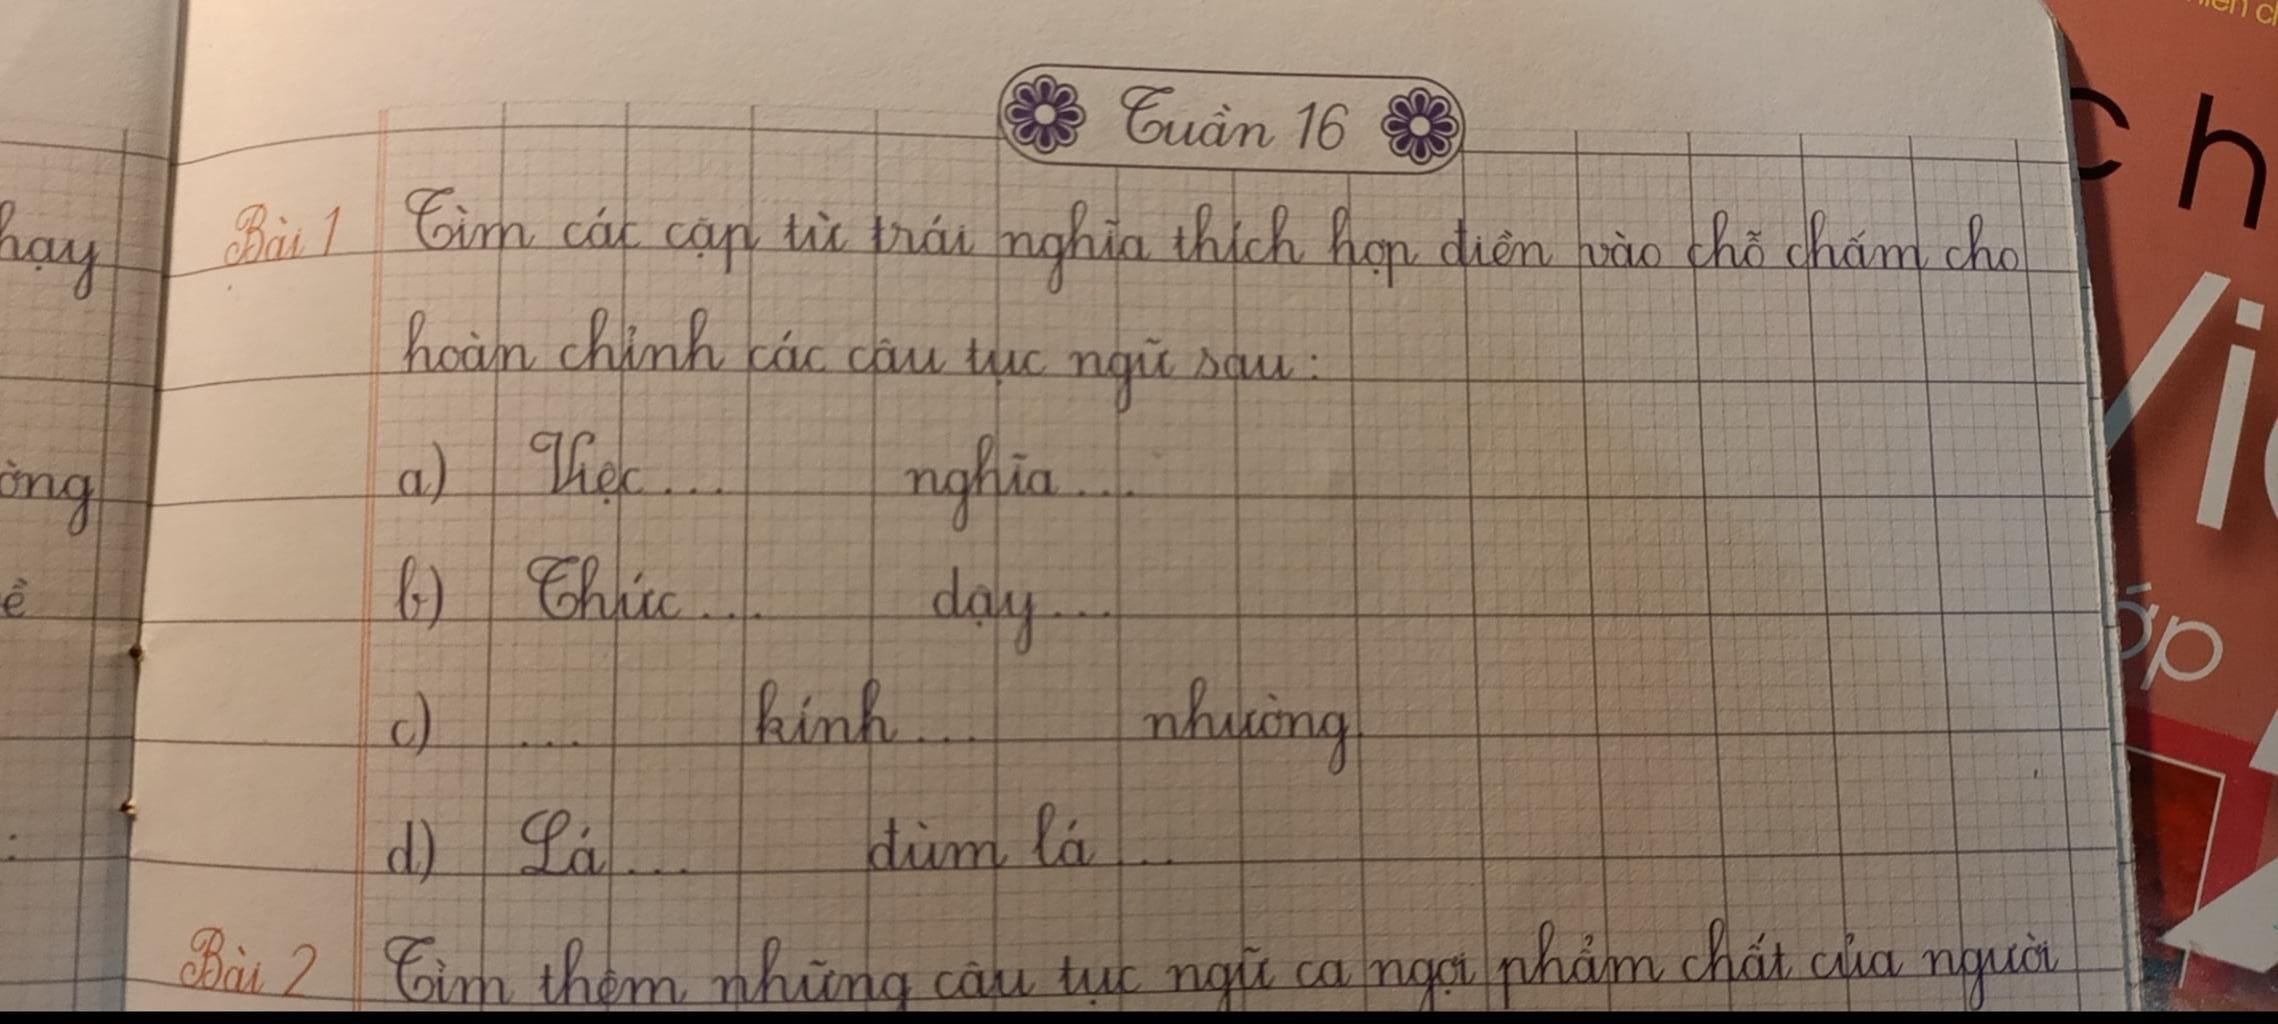 Tuần 16
Bài 1 Tìm các cặp từ trái nghĩa thích hợp điền vào chỗ chấm cho
hoàn chỉnh các câu tục ngữ sau:
a) Việc... nghĩa...
b) Thức... dậy...
c) ... kính... nhường
d) Lá... đùm lá...
Bài 2 Tìm thêm những câu tục ngữ ca ngợi phẩm chất của người
hay
ê
ch
Vi
ớp